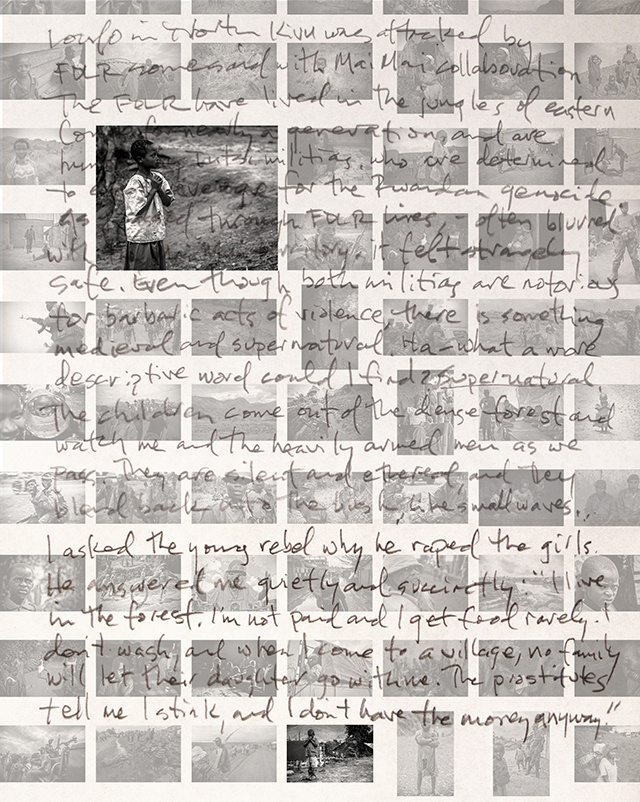 in North Kivu was attacked by
FDLR commesaid with Mai Mai collaboration
The FDLR have lived in the jungles of eastern
Congo for nearly a generation and are
Hutu militias, who are determined
to avenge for the Rwandan genocide
as through FDLR lines, - often blurred
with it felt strangely
safe. Even though both militias are notorious
for barbaric acts of violence, there is something
medieval and supernatural. Ha-what a more
descriptive word could I find? supernatural.
The children come out of the dense forest and
watch me and the heavily armed men as we
pass. They are silent and ethereal, and they
blend back into the bush, like small waves..
I asked the young rebel why he raped the girls.
He answered me quietly and succinctly: "I live
in the forest. I'm not paid and I get food rarely. I
don't wash, and when I come to a village, no family
will let their daughter go with me. The prostitutes
tell me I stink, and I don't have the money anyway."